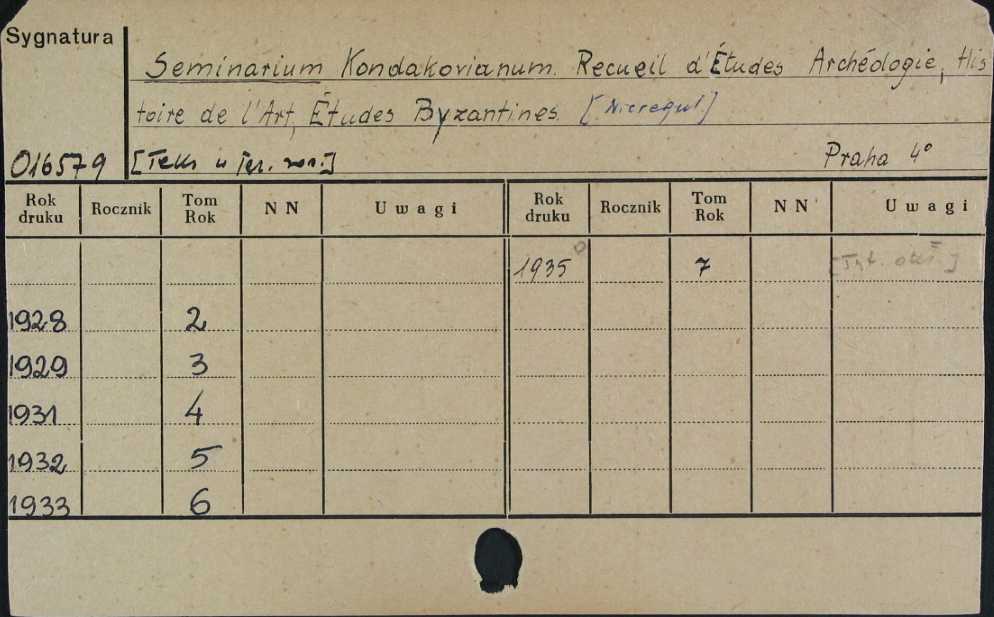 Sygnatura
Seminarium Kondakovianum. Recueil d'Études Archéologie, His
toire de l'Art, Études Byzantines. [Nieregul.]
016579 [Teks w jęz. ros.] Praha 4°
Rok druku Rocznik Tom Rok NN Uwagi Rok druku Rocznik Tom Rok NN Uwagi
1935 7 [Tyt. okł.]
1928 2
1929 3
1931 4
1932 5
1933 6